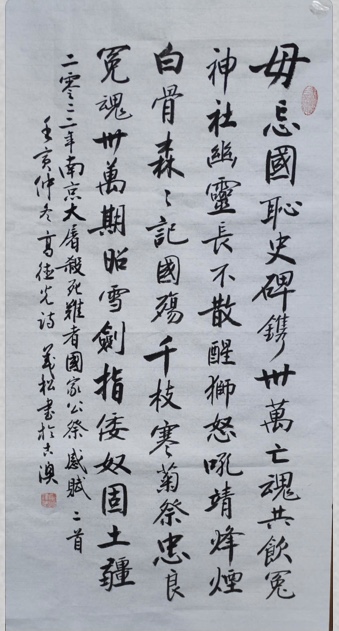 毋忘國恥史碑鐫卅萬亡魂共飲冤
神社幽靈長不散醒獅怒吼靖烽煙
白骨森々記國殤千枝寒菊祭忠良
冤魂卅萬期昭雪劍指倭奴固土疆
二零二二年南京大屠殺死難者國家公祭感賦二首
壬寅仲冬高德光詩 松書於古澳